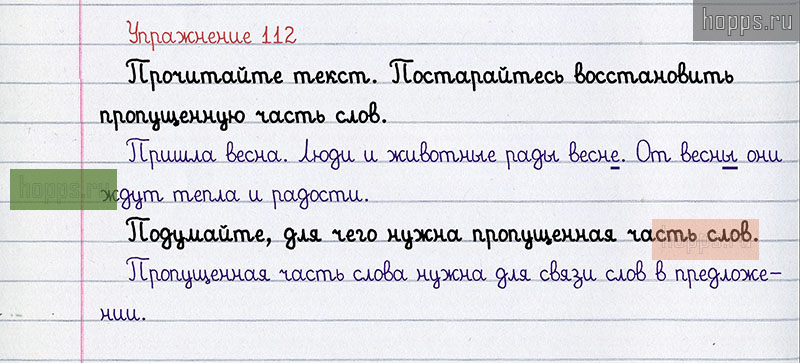 hopps.ru
Упражнение 112
Прочитайте текст. Постарайтесь восстановить
пропущенную часть слов.
Пришла весна. Люди и животные рады весне. От весны они
hopps.ru
ждут тепла и радости.
Подумайте, для чего нужна пропущенная часть слов.
hopps.ru
Пропущенная часть слова нужна для связи слов в предложе-
нии.